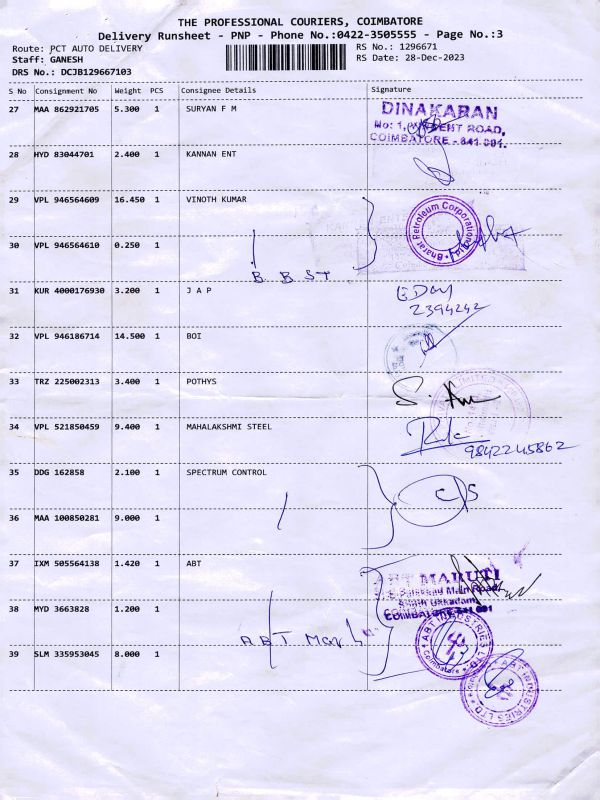 THE PROFESSIONAL COURIERS, COIMBATORE
Delivery Runsheet - PNP - Phone No.:0422-3505555 - Page No.:3
Route: PCT AUTO DELIVERY RS No.: 1296671
Staff: GANESH RS Date: 28-Dec-2023
DRS No.: DCJB129667103
S No Consignment No Weight PCS Consignee Details Signature
27 MAA 862921705 5.300 1 SURYAN F M
DINAKARAN
COIMBATORE - 641 001.
28 HYD 83044701 2.400 1 KANNAN ENT
29 VPL 946564609 16.450 1 VINOTH KUMAR
Bharat Petroleum Corporation
30 VPL 946564610 0.250 1
31 KUR 4000176930 3.200 1 J A P
2394242
32 VPL 946186714 14.500 1 BOI
33 TRZ 225002313 3.400 1 POTHYS
34 VPL 521850459 9.400 1 MAHALAKSHMI STEEL
9842245862
35 DDG 162858 2.100 1 SPECTRUM CONTROL
C/S
36 MAA 100850281 9.000 1
37 IXM 505564138 1.420 1 ABT
MARUTI
38 MYD 3663828 1.200 1
COIMBATORE
ABT INDUSTRIES LTD
Coimbatore
39 SLM 335953045 8.000 1
ABT INDUSTRIES LTD